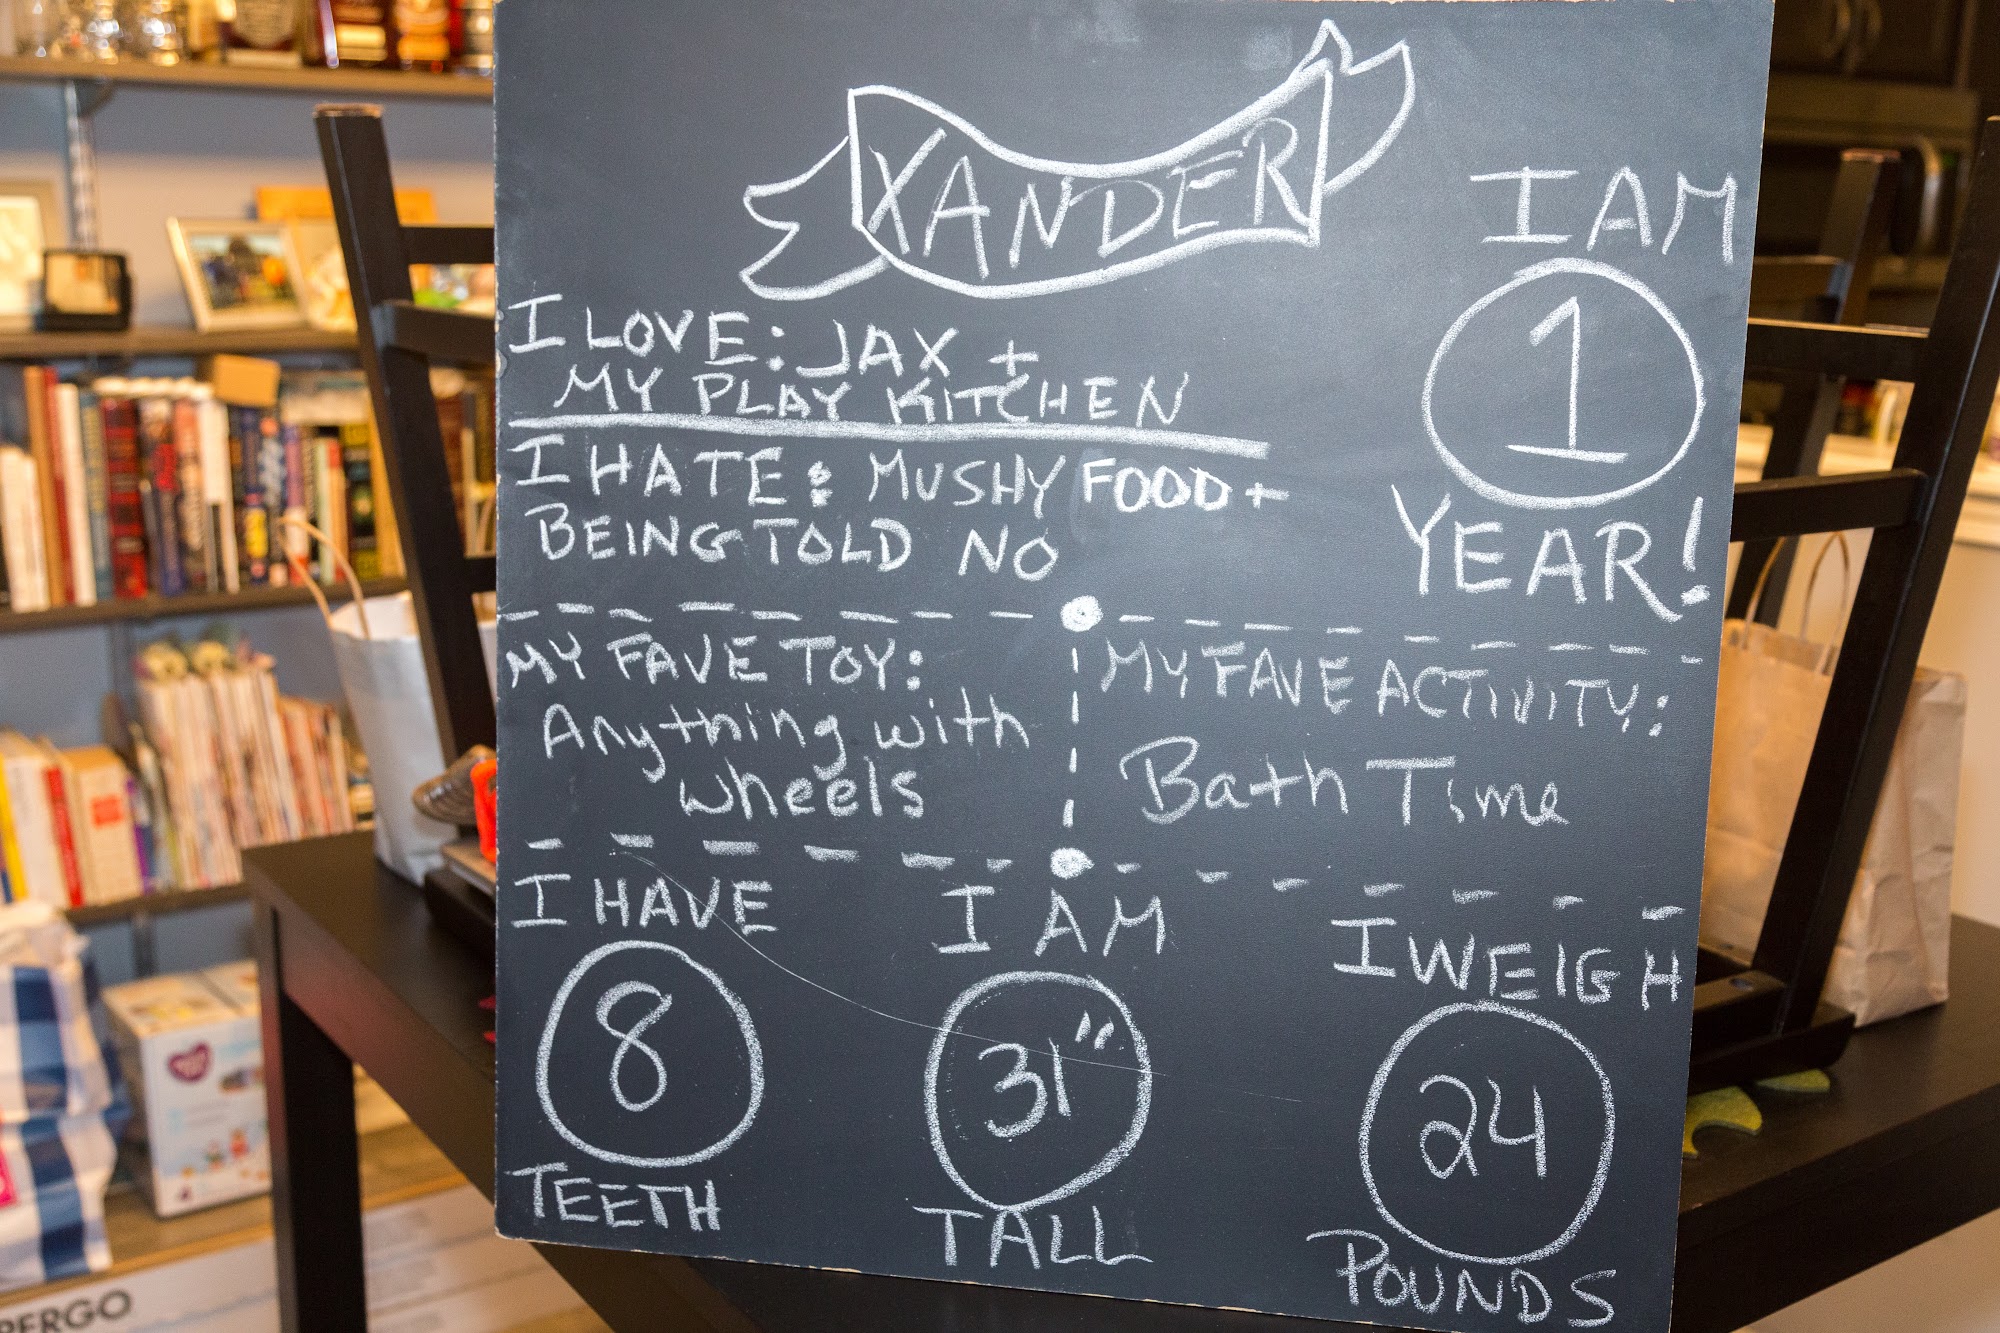 XANDER
I AM
1
YEAR!
I LOVE: JAX +
MY PLAY KITCHEN
I HATE: MUSHY FOOD +
BEING TOLD NO
MY FAVE TOY:
Anything with
wheels
MY FAVE ACTIVITY:
Bath Time
I HAVE
8
TEETH
I AM
31"
TALL
I WEIGH
24
POUNDS
PERGO